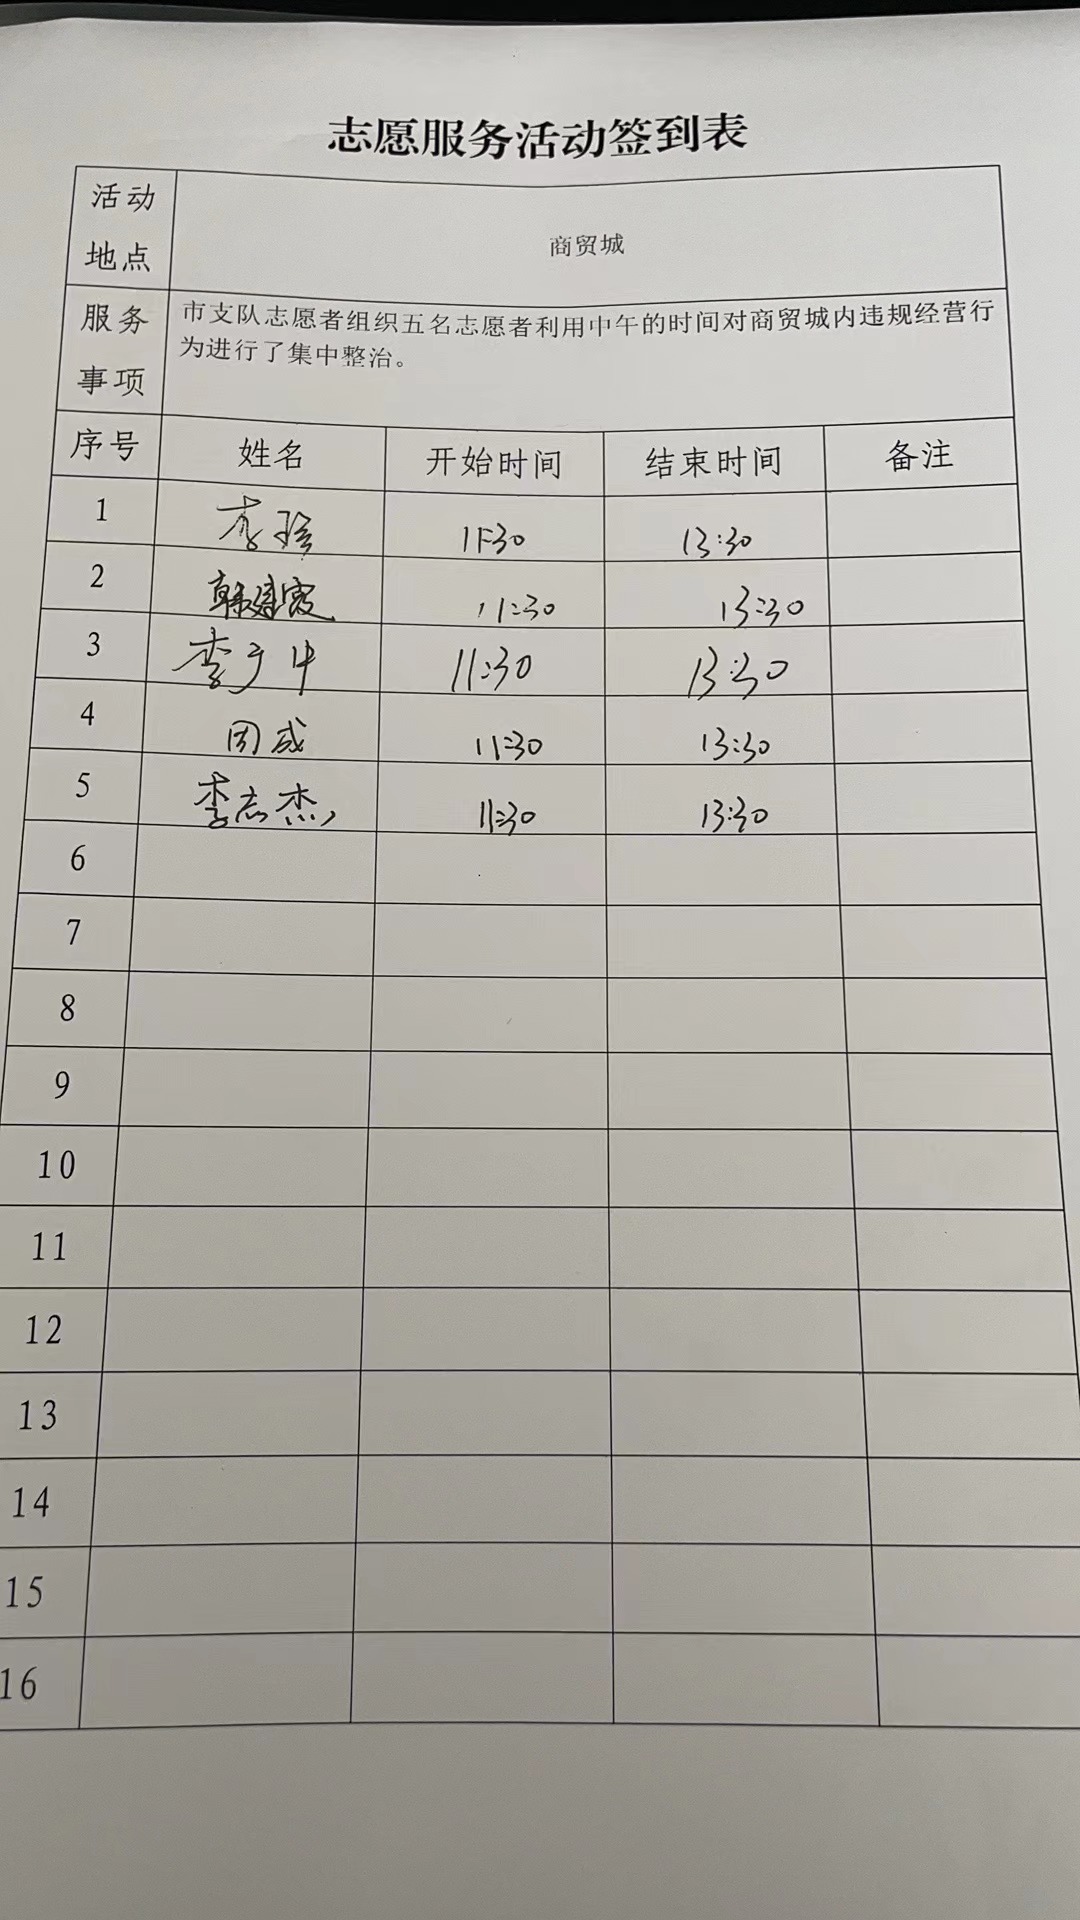 志愿服务活动签到表
活动地点
商贸城
服务事项
市支队志愿者组织五名志愿者利用中午的时间对商贸城内违规经营行
为进行了集中整治。
序号 姓名 开始时间 结束时间 备注
1 李 11:30 13:30
2 韩建霞 11:30 13:30
3 李 11:30 13:30
4 周成 11:30 13:30
5 李志杰 11:30 13:30
6
7
8
9
10
11
12
13
14
15
16